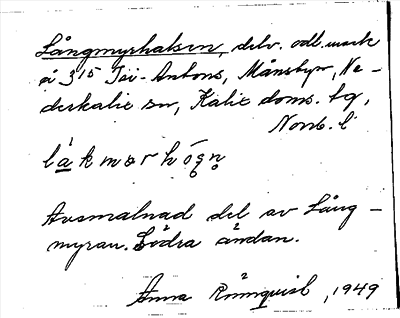 Långmyrhalsen, delv. odl. mark
å 3¹⁵ Isi-Antons, Månsbyn, Ne-
derkalix sn, Kalix doms. tg,
Norrb. l
Avsmalnad del av Lång-
myran. Södra ändan.
Anna Rönnquist, 1949